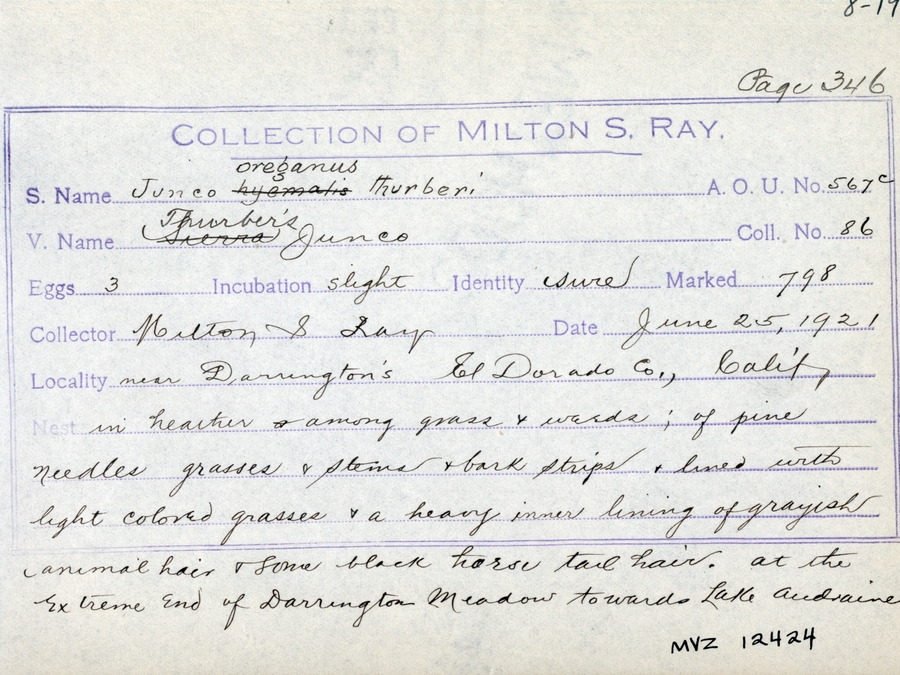 8-19
Page 346
COLLECTION OF MILTON S. RAY.
oreganus
S. Name Junco hyemalis thurberi A. O. U. No. 567c
Thurber's
V. Name (Sierra) Junco Coll. No. 86
Eggs 3 Incubation slight Identity sure Marked 798
Collector Milton S Ray Date June 25, 1921
Locality near Darrington's El Dorado Co., Calif
Nest in heather & among grass & weeds; of pine
needles grasses & stems & bark strips & lined with
light colored grasses & a heavy inner lining of grayish
animal hair & some black horse tail hair. at the
Extreme End of Darrington Meadow towards Lake Audraine
MVZ 12424